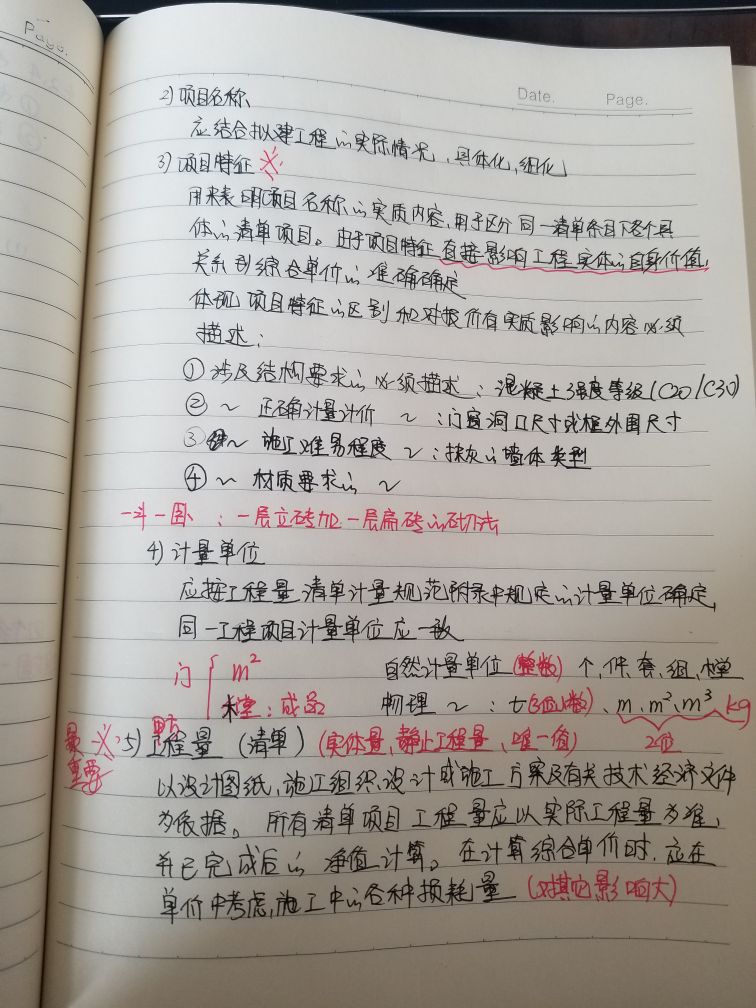 Page.
Date. Page.
2) 项目名称
应结合拟建工程的实际情况、具体化,细化
3) 项目特征 ※
用来表明项目名称的实质内容,用于区分同一清单条目下各个具
体的清单项目。由于项目特征直接影响工程实体的自身价值,
关系到综合单价的准确确定
体现项目特征的区别和对报价有实质影响的内容必须
描述:
① 涉及结构要求的必须描述:混凝土强度等级(C20/C30)
② ~ 正确计量计价 ~ :门窗洞口尺寸或框外围尺寸
③ ~ 施工难易程度 ~ :抹灰的墙体类型
④ ~ 材质要求的 ~
一斗一卧 :一层立砖加一层扁砖的砌法
4) 计量单位
应按工程量清单计量规范附录中规定的计量单位确定,
同一工程项目计量单位应一致
门 { m² 自然计量单位(整数)个,件,套,组,樘
樘:成品 物理 ~ :t(3位小数)、m、m²、m³ kg
2位
最重要 ※ 5) 工程量(清单)(实体量,静止工程量、唯一值)
以设计图纸,施工组织设计或施工方案及有关技术经济文件
为依据。所有清单项目工程量应以实际工程量为准,
并已完成后的净值计算。在计算综合单价时.应在
单价中考虑,施工中的各种损耗量(对其它影响大)